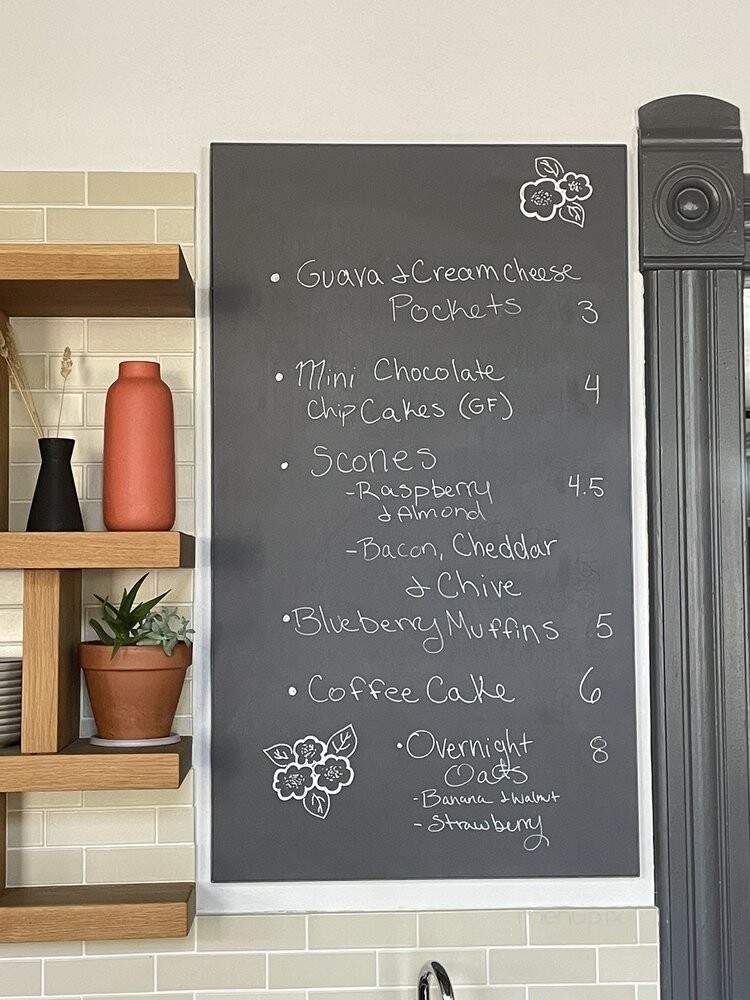 • Guava & Cream cheese
Pockets 3
• Mini Chocolate
Chip Cakes (GF) 4
• Scones
-Raspberry 4.5
& Almond
-Bacon, Cheddar
& Chive
• Blueberry Muffins 5
• Coffee Cake 6
• Overnight 8
Oats
- Banana & Walnut
- Strawberry